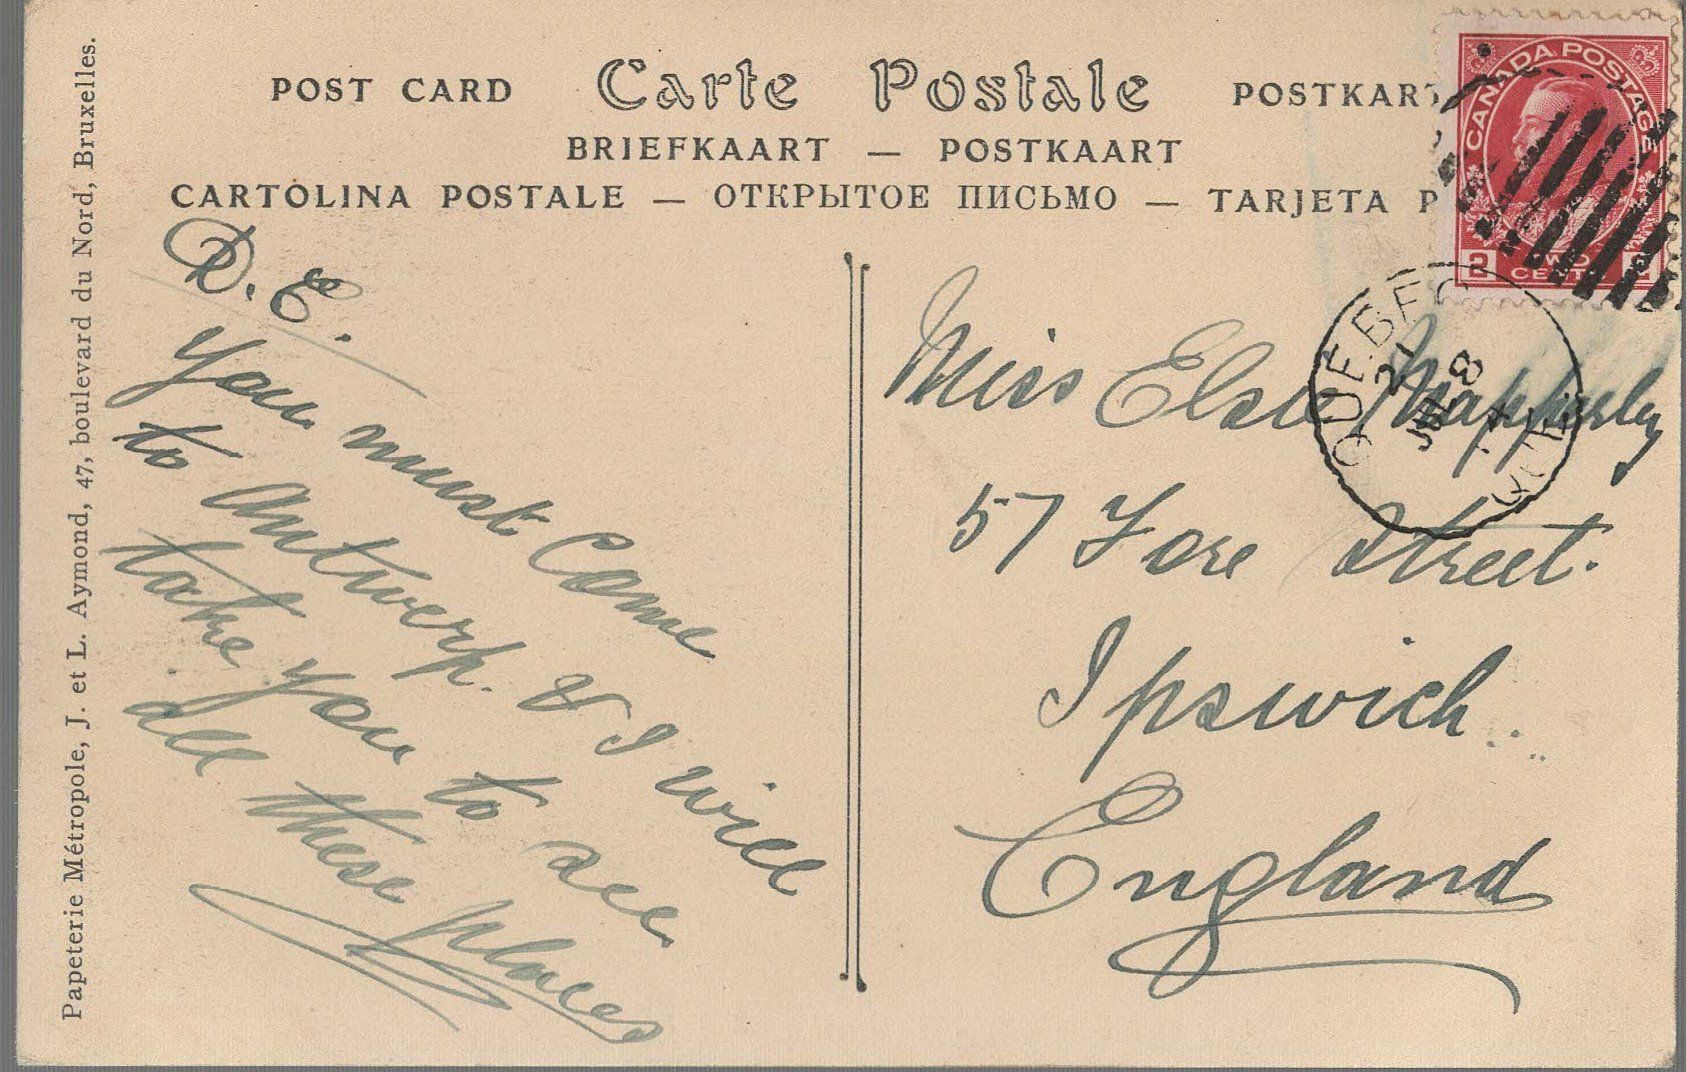 POST CARD Carte Postale POSTKAR
BRIEFKAART — POSTKAART
CARTOLINA POSTALE — ОТКРЫТОЕ ПИСЬМО — TARJETA P
Papeterie Métropole, J. et L. Aymond, 47, boulevard du Nord, Bruxelles.
D. E.
You must Come
to Antwerp. & I will
take you to see
all these places
CANADA POSTAGE
2 TWO CENTS
QUEBEC
21
JUL 8
14
QUE
Miss Elsie Mapperley
57 Fore Street.
Ipswich
England